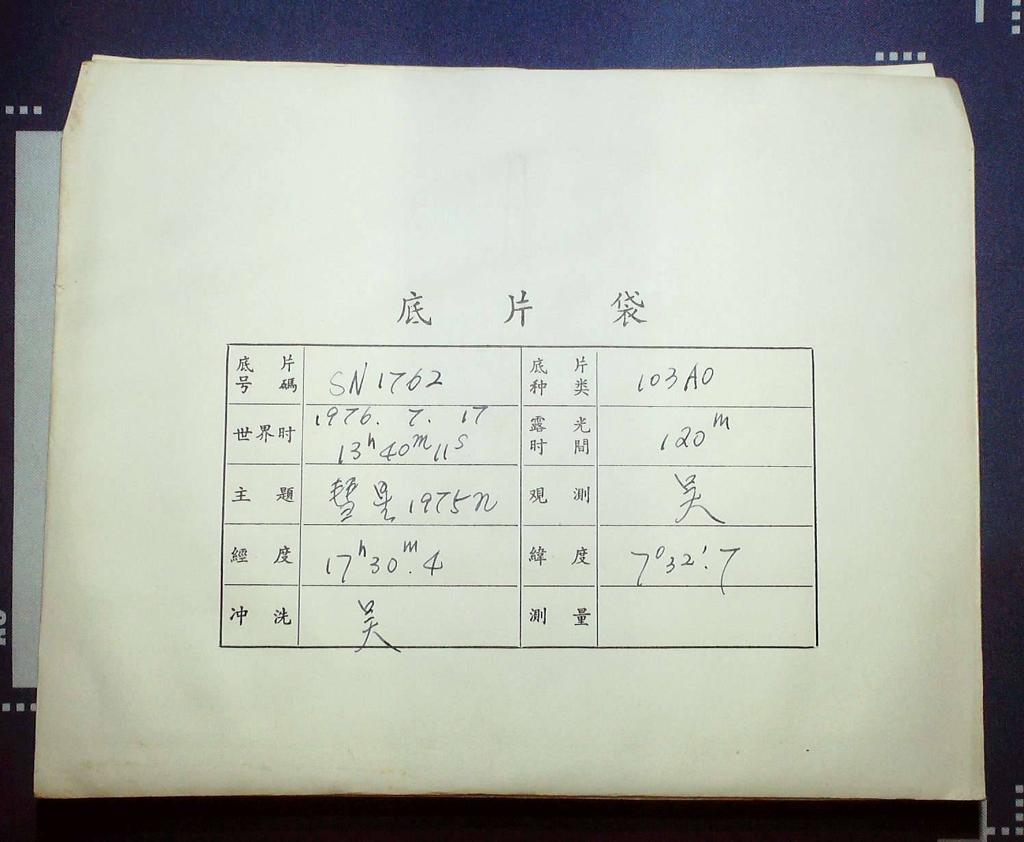 底片袋
底片号碼 SN 1762 底片种类 103A0
世界时 1976. 7. 17 13h 40m 11s 露光时間 120m
主題 彗星 1975n 观測 吴
經度 17h 30m.4 緯度 7° 32′.7
冲洗 吴 測量